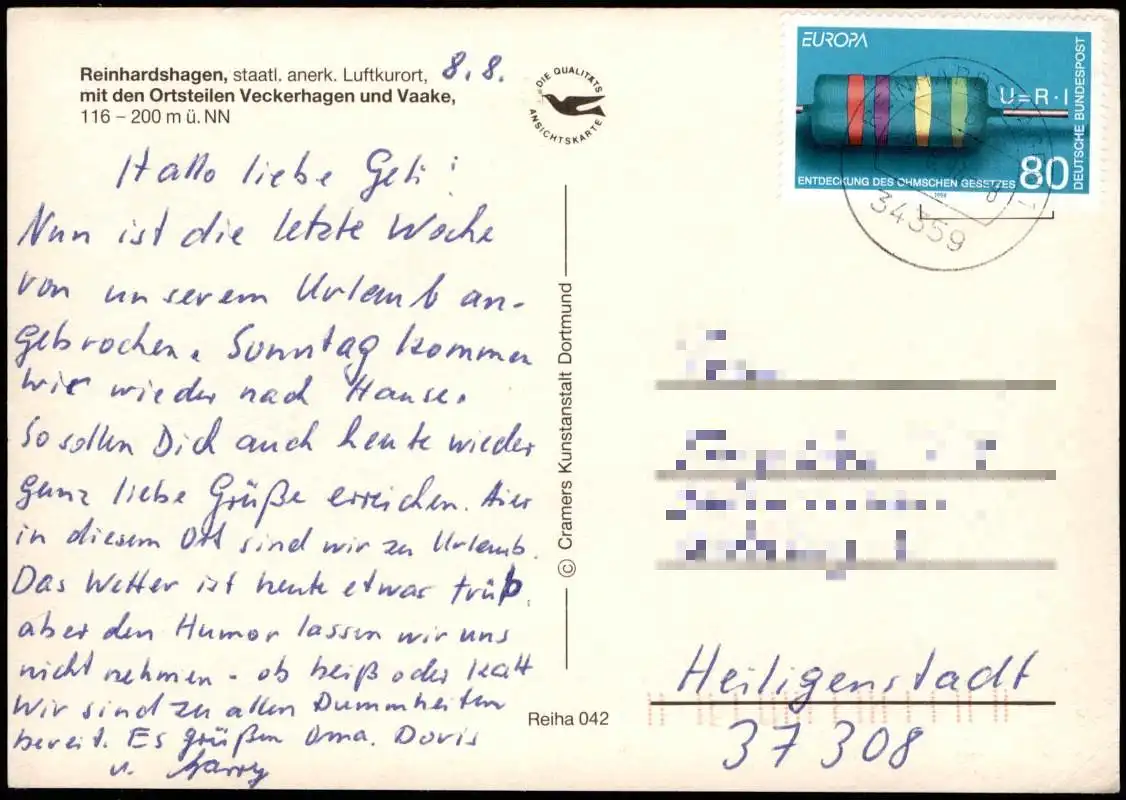 Reinhardshagen, staatl. anerk. Luftkurort, 8.8.
mit den Ortsteilen Veckerhagen und Vaake,
116 – 200 m ü. NN
DIE QUALITÄTS
ANSICHTSKARTE
Hallo liebe Geti!
Nun ist die letzte Woche
von unserem Urlaub an-
gebrochen. Sonntag kommen
wir wieder nach Hause.
So sollen Dich auch heute wieder
ganz liebe Grüße erreichen. Hier
in diesem Ort sind wir zu Urlaub.
Das Wetter ist heute etwas trüb,
aber den Humor lassen wir uns
nicht nehmen - ob heiß oder kalt
Wir sind zu allen Dummheiten
bereit. Es grüßen Oma. Doris
u. Harry
© Cramers Kunstanstalt Dortmund
Reiha 042
EUROPA
U=R·I
ENTDECKUNG DES OHMSCHEN GESETZES 80
1994
DEUTSCHE BUNDESPOST
34359
Heiligenstadt
37308